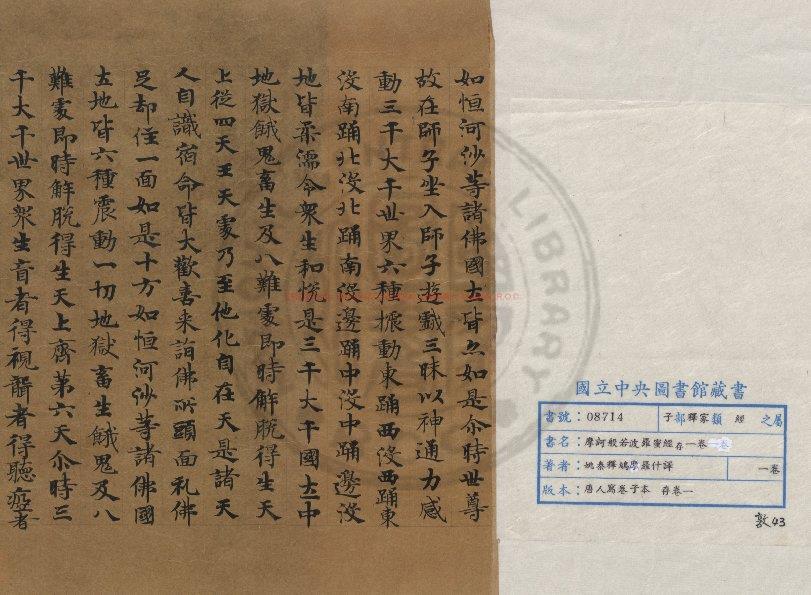 如恒河沙等諸佛國土皆亦如是尒時世尊
故在師子坐入師子遊戲三昧以神通力感
動三千大千世界六種振動東踊西沒西踊東
沒南踊北沒北踊南沒邊踊中沒中踊邊沒
地皆柔濡令衆生和悅是三千大千國土中
地獄餓鬼畜生及八難處即時解脫得生天
上從四天王天處乃至他化自在天是諸天
人自識宿命皆大歡喜来詣佛所頭面礼佛
足却住一面如是十方如恒河沙等諸佛國
土地皆六種震動一切地獄畜生餓鬼及八
難處即時解脫得生天上齊第六天尒時三
千大千世界衆生盲者得視聾者得聽瘂者
LIBRARY
國立中央圖書館藏書
書號：08714 子部釋家類 經 之屬
書名：摩訶般若波羅蜜經存一卷
著者：姚秦釋鳩摩羅什譯 一卷
版本：唐人寫卷子本 存卷一
敦43